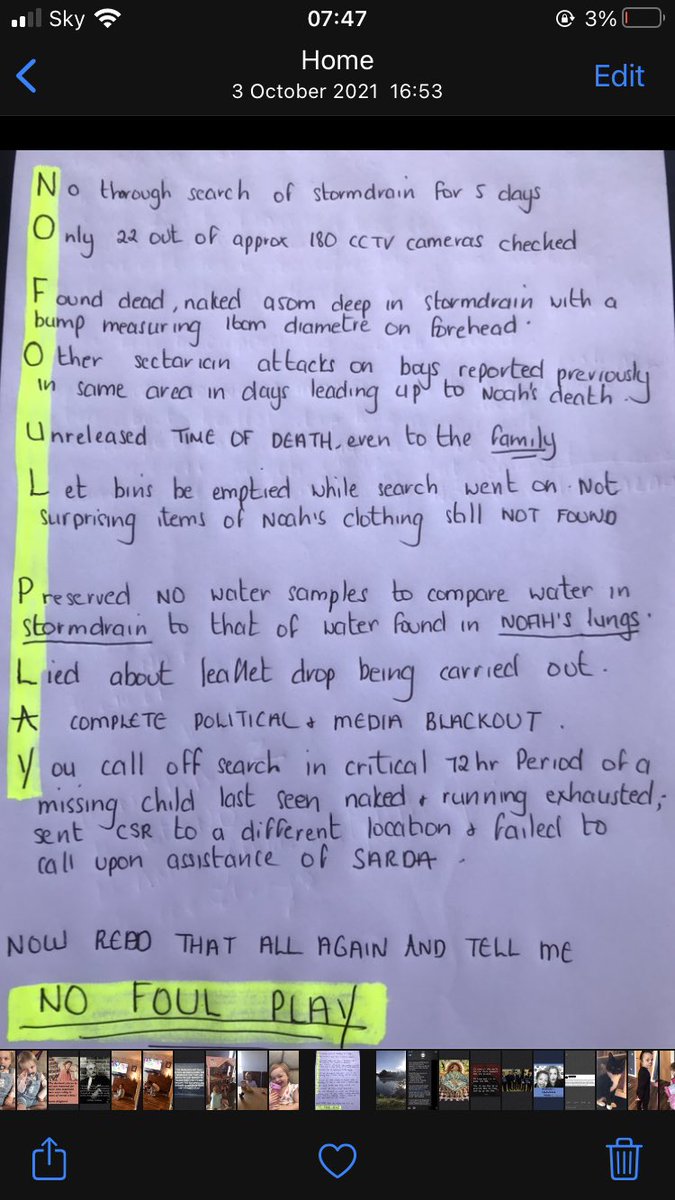 Sky 07:47 3%
Home
3 October 2021 16:53
Edit
No thorough search of stormdrain for 5 days
Only 22 out of approx 180 CCTV cameras checked
Found dead, naked 950m deep in stormdrain with a
bump measuring 16cm diametre on forehead.
Other sectarian attacks on boys reported previously
in same area in days leading up to Noah's death.
Unreleased TIME OF DEATH, even to the family
Let bins be emptied while search went on. Not
surprising items of Noah's clothing still NOT FOUND
Preserved NO water samples to compare water in
stormdrain to that of water found in NOAH'S lungs.
Lied about leaflet drop being carried out.
A COMPLETE POLITICAL + MEDIA BLACKOUT.
You call off search in critical 72hr Period of a
missing child last seen naked + running exhausted,
sent CSR to a different location + failed to
call upon assistance of SARDA.
NOW READ THAT ALL AGAIN AND TELL me
NO FOUL PLAY